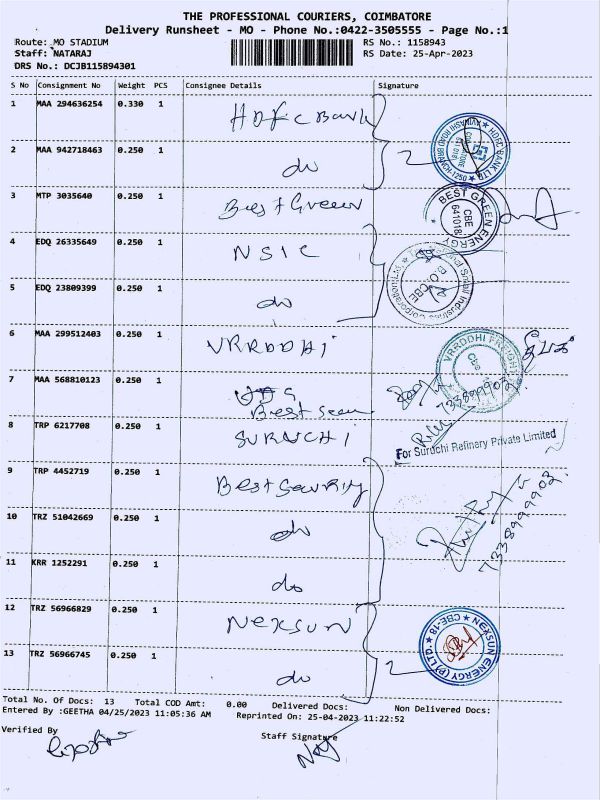 THE PROFESSIONAL COURIERS, COIMBATORE
Delivery Runsheet - MO - Phone No.:0422-3505555 - Page No.:1
Route: MO STADIUM
RS No.: 1158943
Staff: NATARAJ
RS Date: 25-Apr-2023
DRS No.: DCJB115894301
S No Consignment No Weight PCS Consignee Details Signature
1 MAA 294636254 0.330 1 HDFC Bank
2 MAA 942718463 0.250 1 do 2
HDFC BANK LTD.
3 MTP 3035640 0.250 1 Best Green
BEST GREEN ENERGY CBE 641018
4 EDQ 26335649 0.250 1 NSIC
5 EDQ 23809399 0.250 1 do
6 MAA 299512403 0.250 1 VRRDDHI
VRRDDHI FREIGHT CBE
7 MAA 568810123 0.250 1
7338999902
8 TRP 6217708 0.250 1 SURUCHI
For Suruchi Refinery Private Limited
9 TRP 4452719 0.250 1 Best Security
10 TRZ 51042669 0.250 1 do
7338999902
11 KRR 1252291 0.250 1 do
12 TRZ 56966829 0.250 1 NEXSUN
13 TRZ 56966745 0.250 1 do 2
NEXSUN ENERGY (P) LTD. CBE-18
Total No. Of Docs: 13 Total COD Amt: 0.00 Delivered Docs: Non Delivered Docs:
Entered By :GEETHA 04/25/2023 11:05:36 AM Reprinted On: 25-04-2023 11:22:52
Verified By
Staff Signature